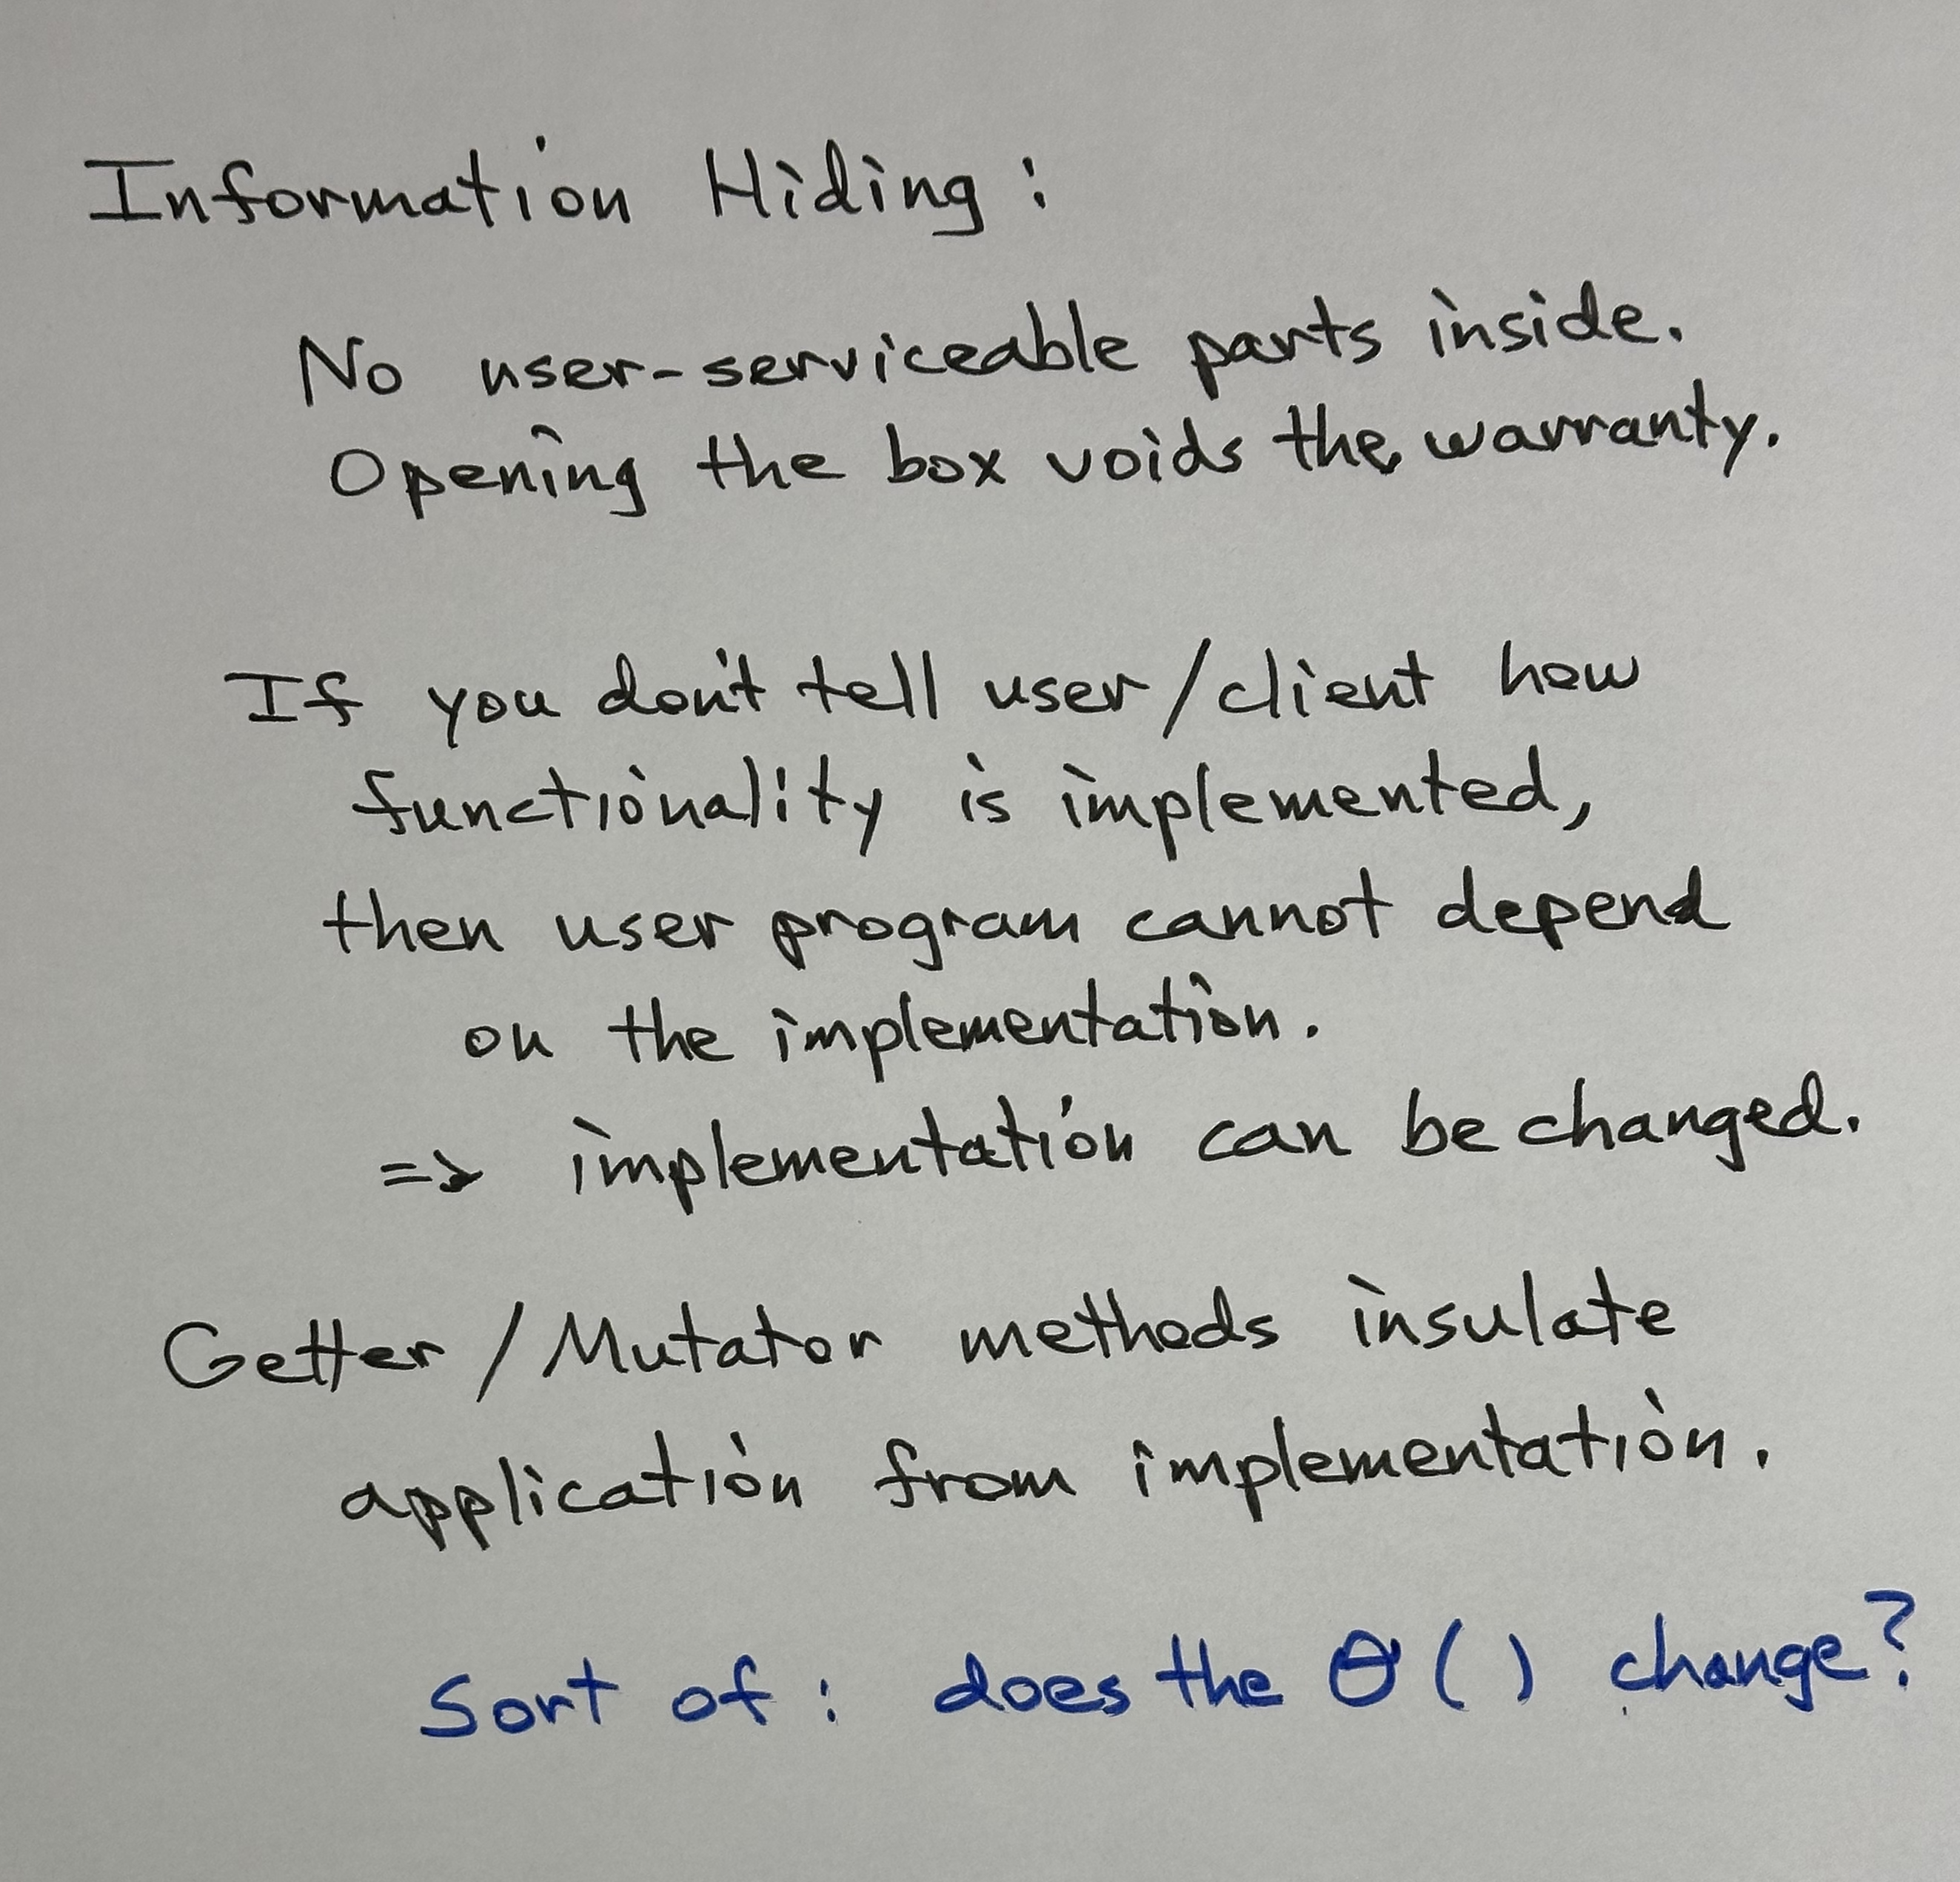 Information Hiding:
No user-serviceable parts inside.
Opening the box voids the warranty.
If you don't tell user/client how
functionality is implemented,
then user program cannot depend
on the implementation.
=> implementation can be changed.
Getter/Mutator methods insulate
application from implementation.
Sort of: does the Θ() change?